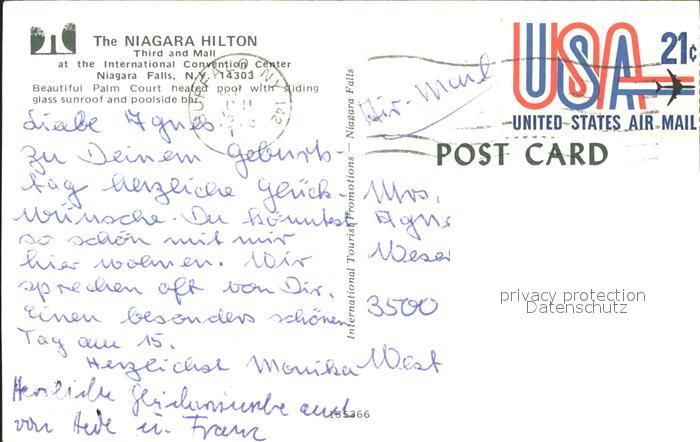 The NIAGARA HILTON
Third and Mall
at the International Convention Center
Niagara Falls, N.Y. 14303
Beautiful Palm Court heated pool with sliding
glass sunroof and poolside bar.
Liebe Agnes
zu Deinem Geburts-
tag herzliche Glück-
wünsche. Du könntest
so schön mit mir
hier wohnen. Wir
sprechen oft von Dir.
Einen besonders schönen
Tag am 15.
Herzlichst Monika
Herzliche Glückwünsche auch
von Hede u. Franz
International Tourist Promotions — Niagara Falls
155366
BUFFALO NY 142
PM
Air-Mail
USA 21c
UNITED STATES AIR MAIL
POST CARD
Mrs.
Agne
Weser
3500
West
privacy protection
Datenschutz